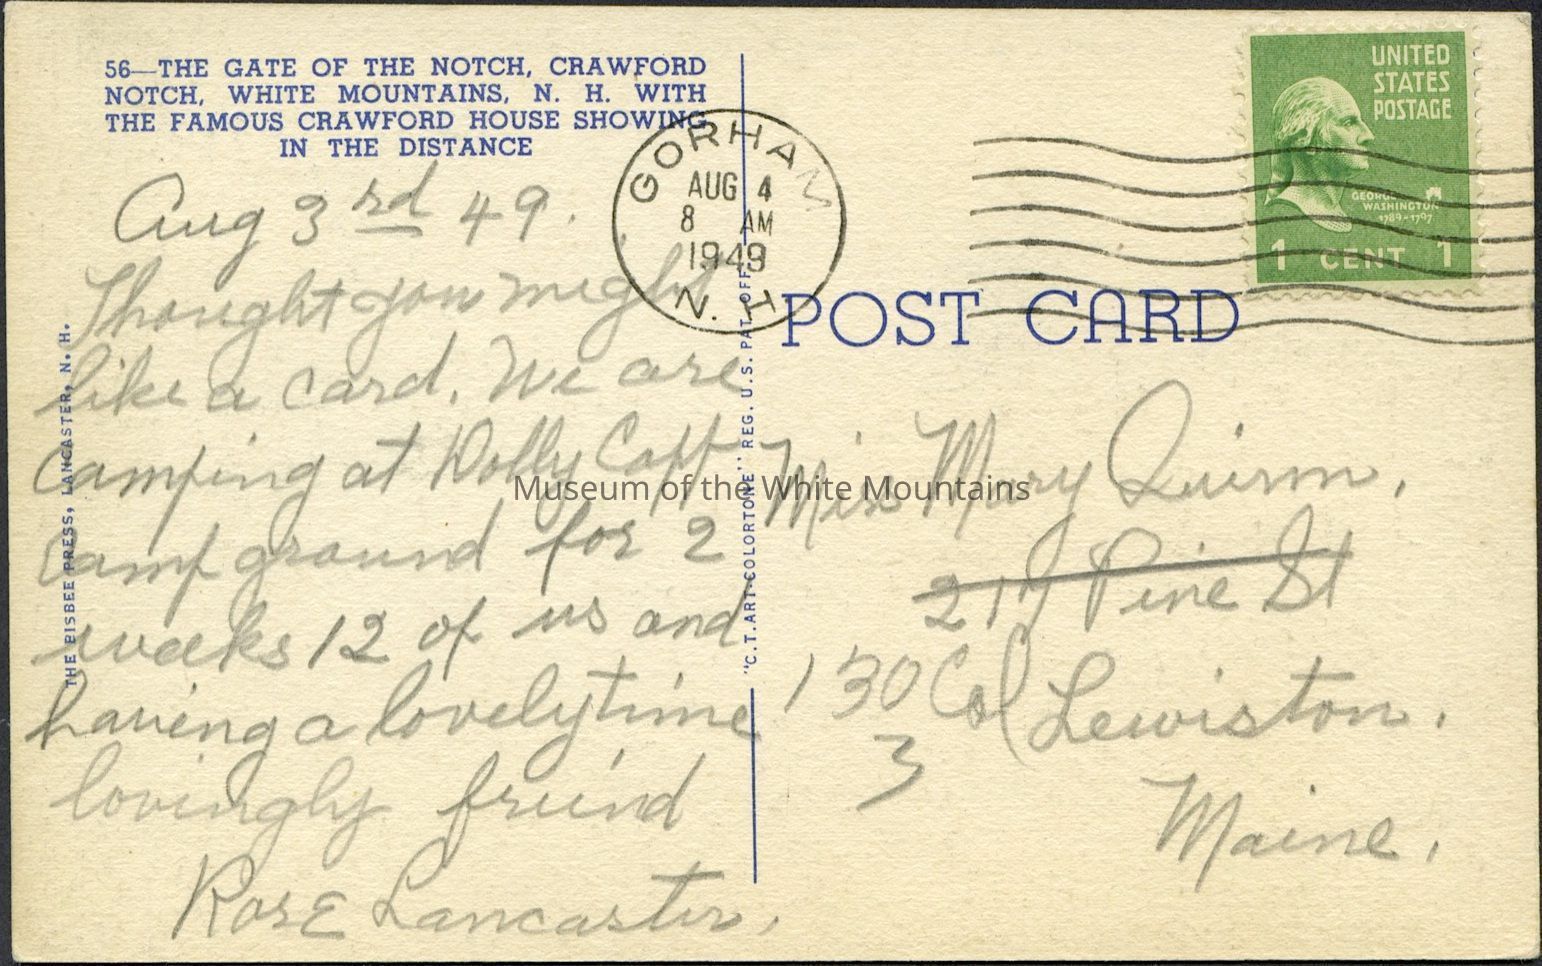 56—THE GATE OF THE NOTCH, CRAWFORD
NOTCH, WHITE MOUNTAINS, N. H. WITH
THE FAMOUS CRAWFORD HOUSE SHOWING
IN THE DISTANCE
Aug 3rd 49.
Thought you might
like a card. We are
camping at Dolly Copp
camp ground for 2
weeks 12 of us and
having a lovely time
lovingly friend
Rose Lancaster.
THE BISBEE PRESS, LANCASTER, N. H.
"C.T.ART-COLORTONE" REG. U.S. PAT. OFF.
GORHAM
AUG 4
8 AM
1949
N. H.
UNITED
STATES
POSTAGE
GEORGE
WASHINGTON
1789-1797
1 CENT 1
POST CARD
Miss Mary Quinn,
217 Pine St
130 Col
Lewiston.
3
Maine.
Museum of the White Mountains